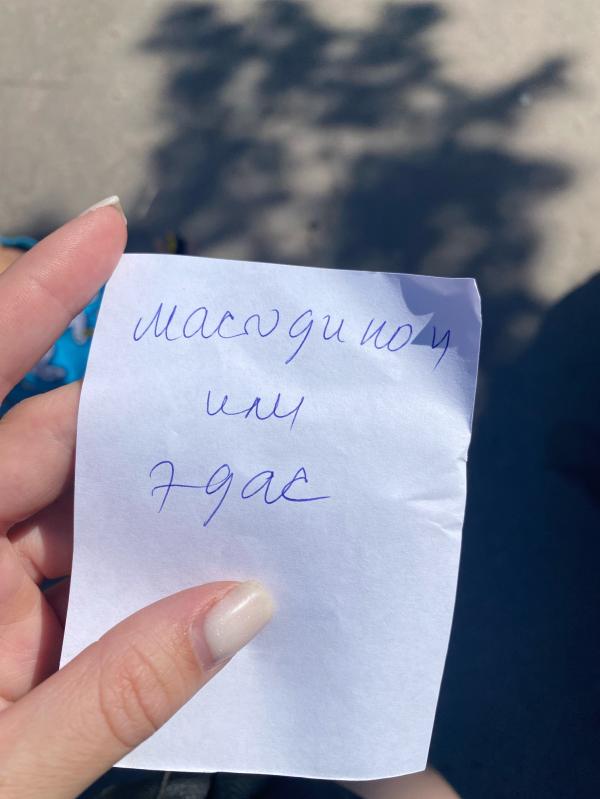 мастодинон
или
эдас